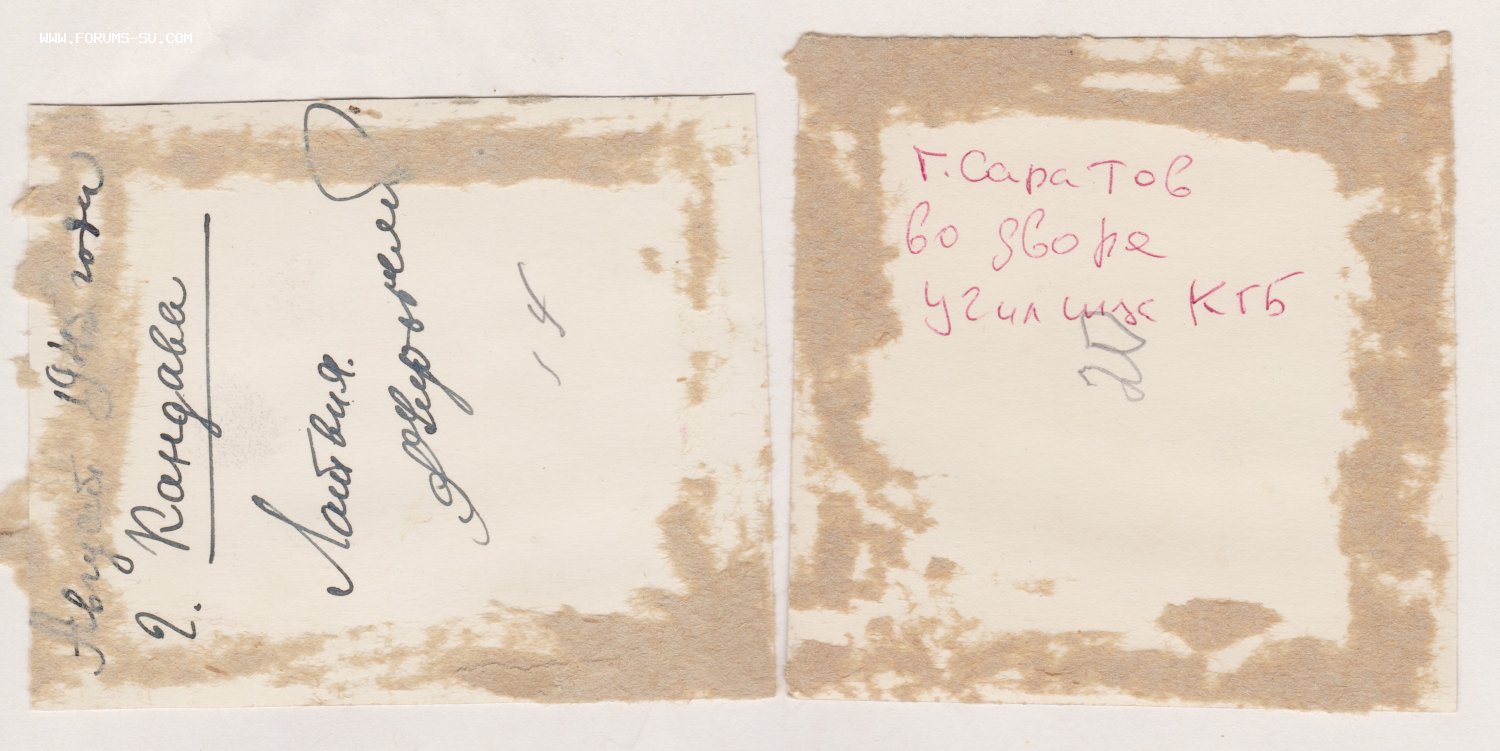 WWW.FORUMS-SU.COM
Август 1945 года
г. Кандава
Латвия.
14
г. Саратов
во дворе
училища КГБ
20